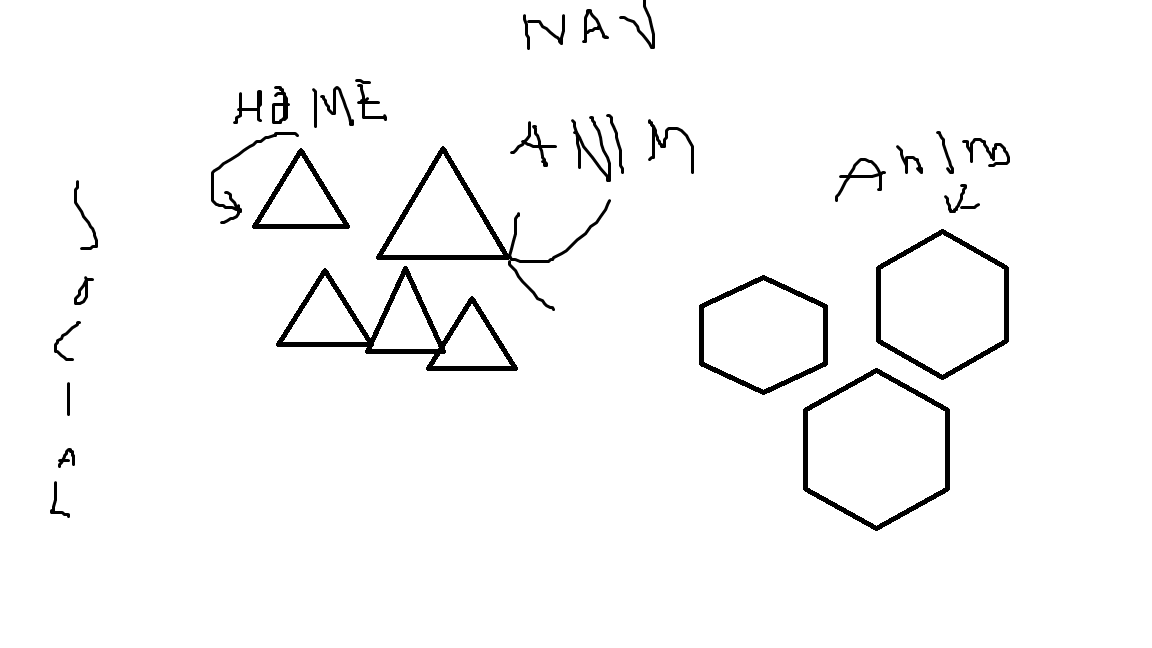 NAV
HOME
ANIM
Anim
SOCIAL